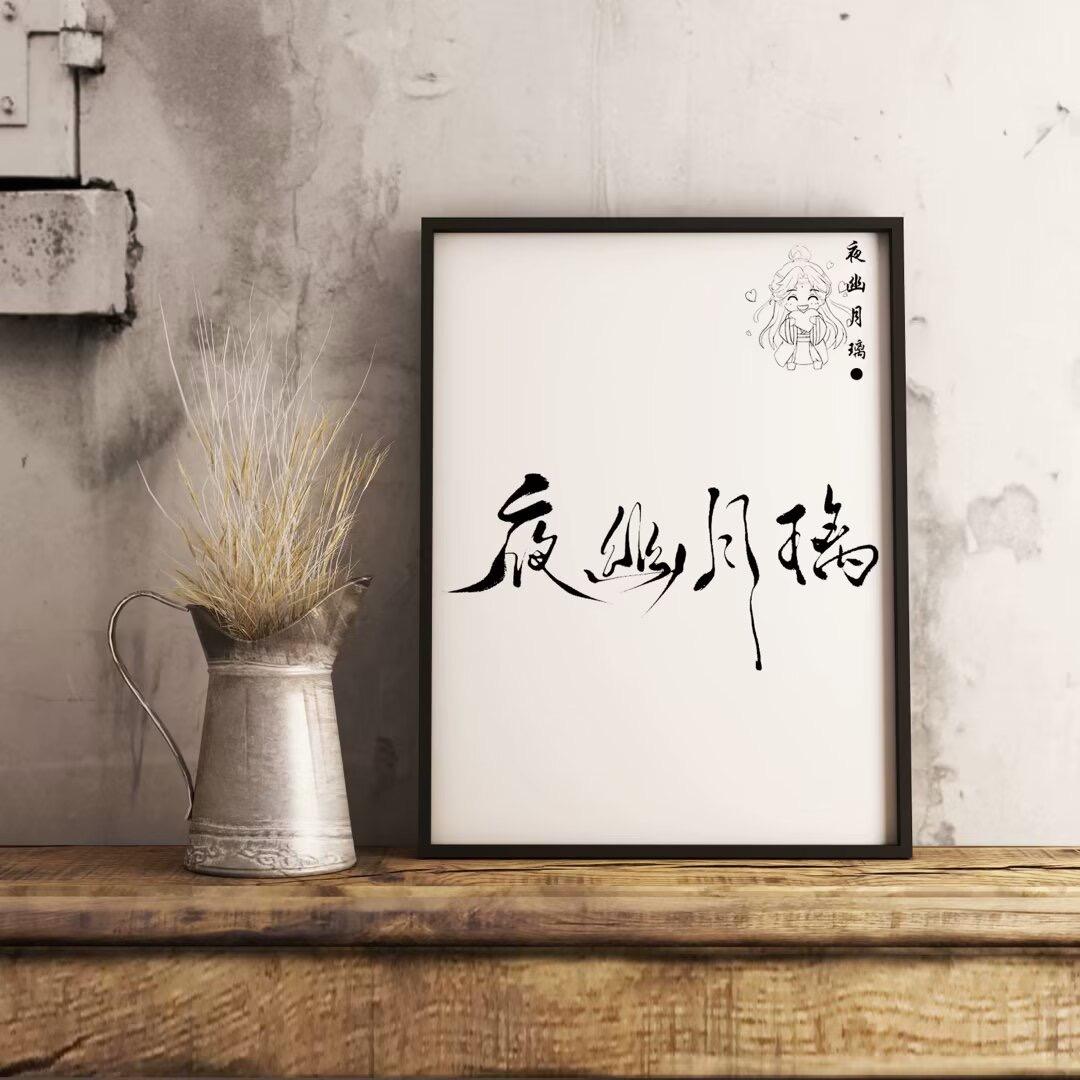 夜幽月璃
夜幽月璃